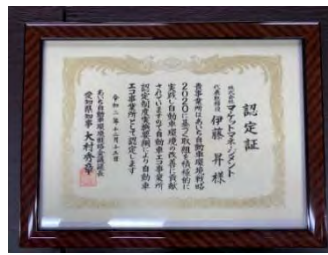 認定証
株式会社マーケットマネジメント
代表取締役 伊藤 昇 様
貴事業所はあいち自動車環境戦略
2020に基づく取組を積極的に
実践し自動車環境の改善に貢献
されていますので自動車エコ事業所
認定制度実施要綱により自動車
エコ事業所として認定します
令和二年十二月十五日
あいち自動車環境戦略会議議長
愛知県知事 大村秀章